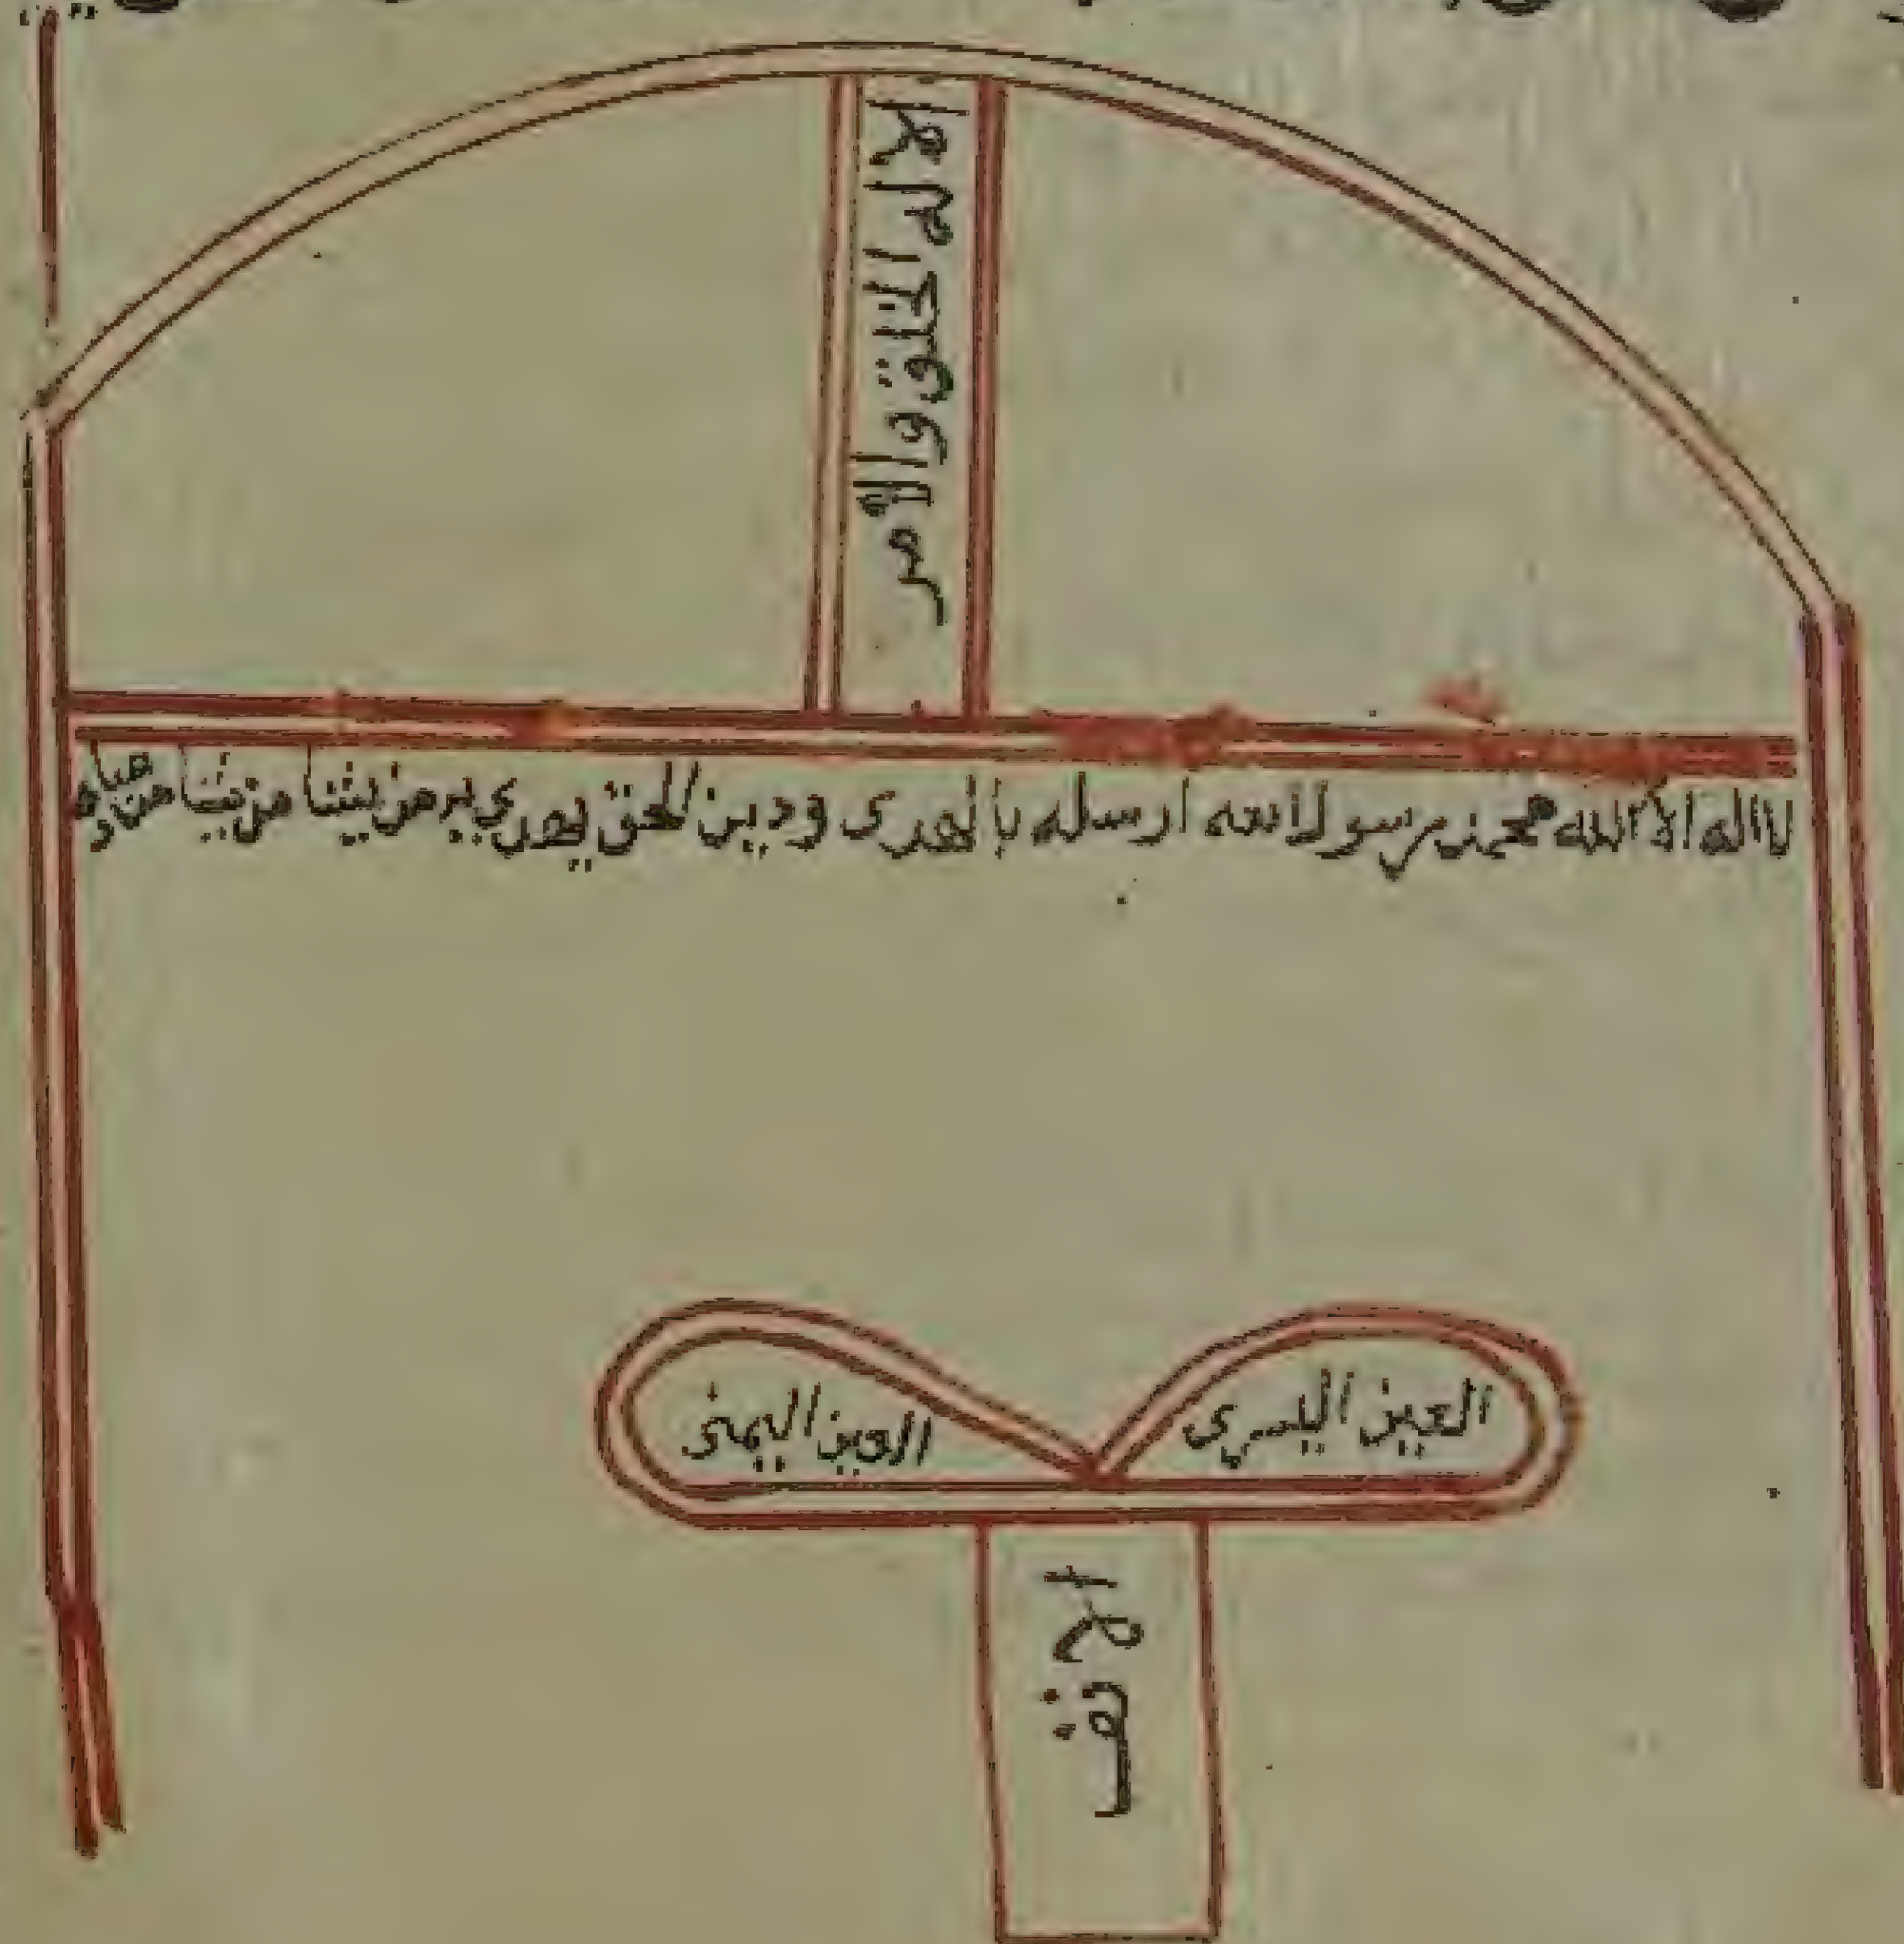 الا له الخلق والأمر
لا اله الا الله محمد رسول الله ارسله بالهدى ودين الحق يهدي به من يشا من يشا من عباده
العين اليمنى
العين اليسرى
الانف